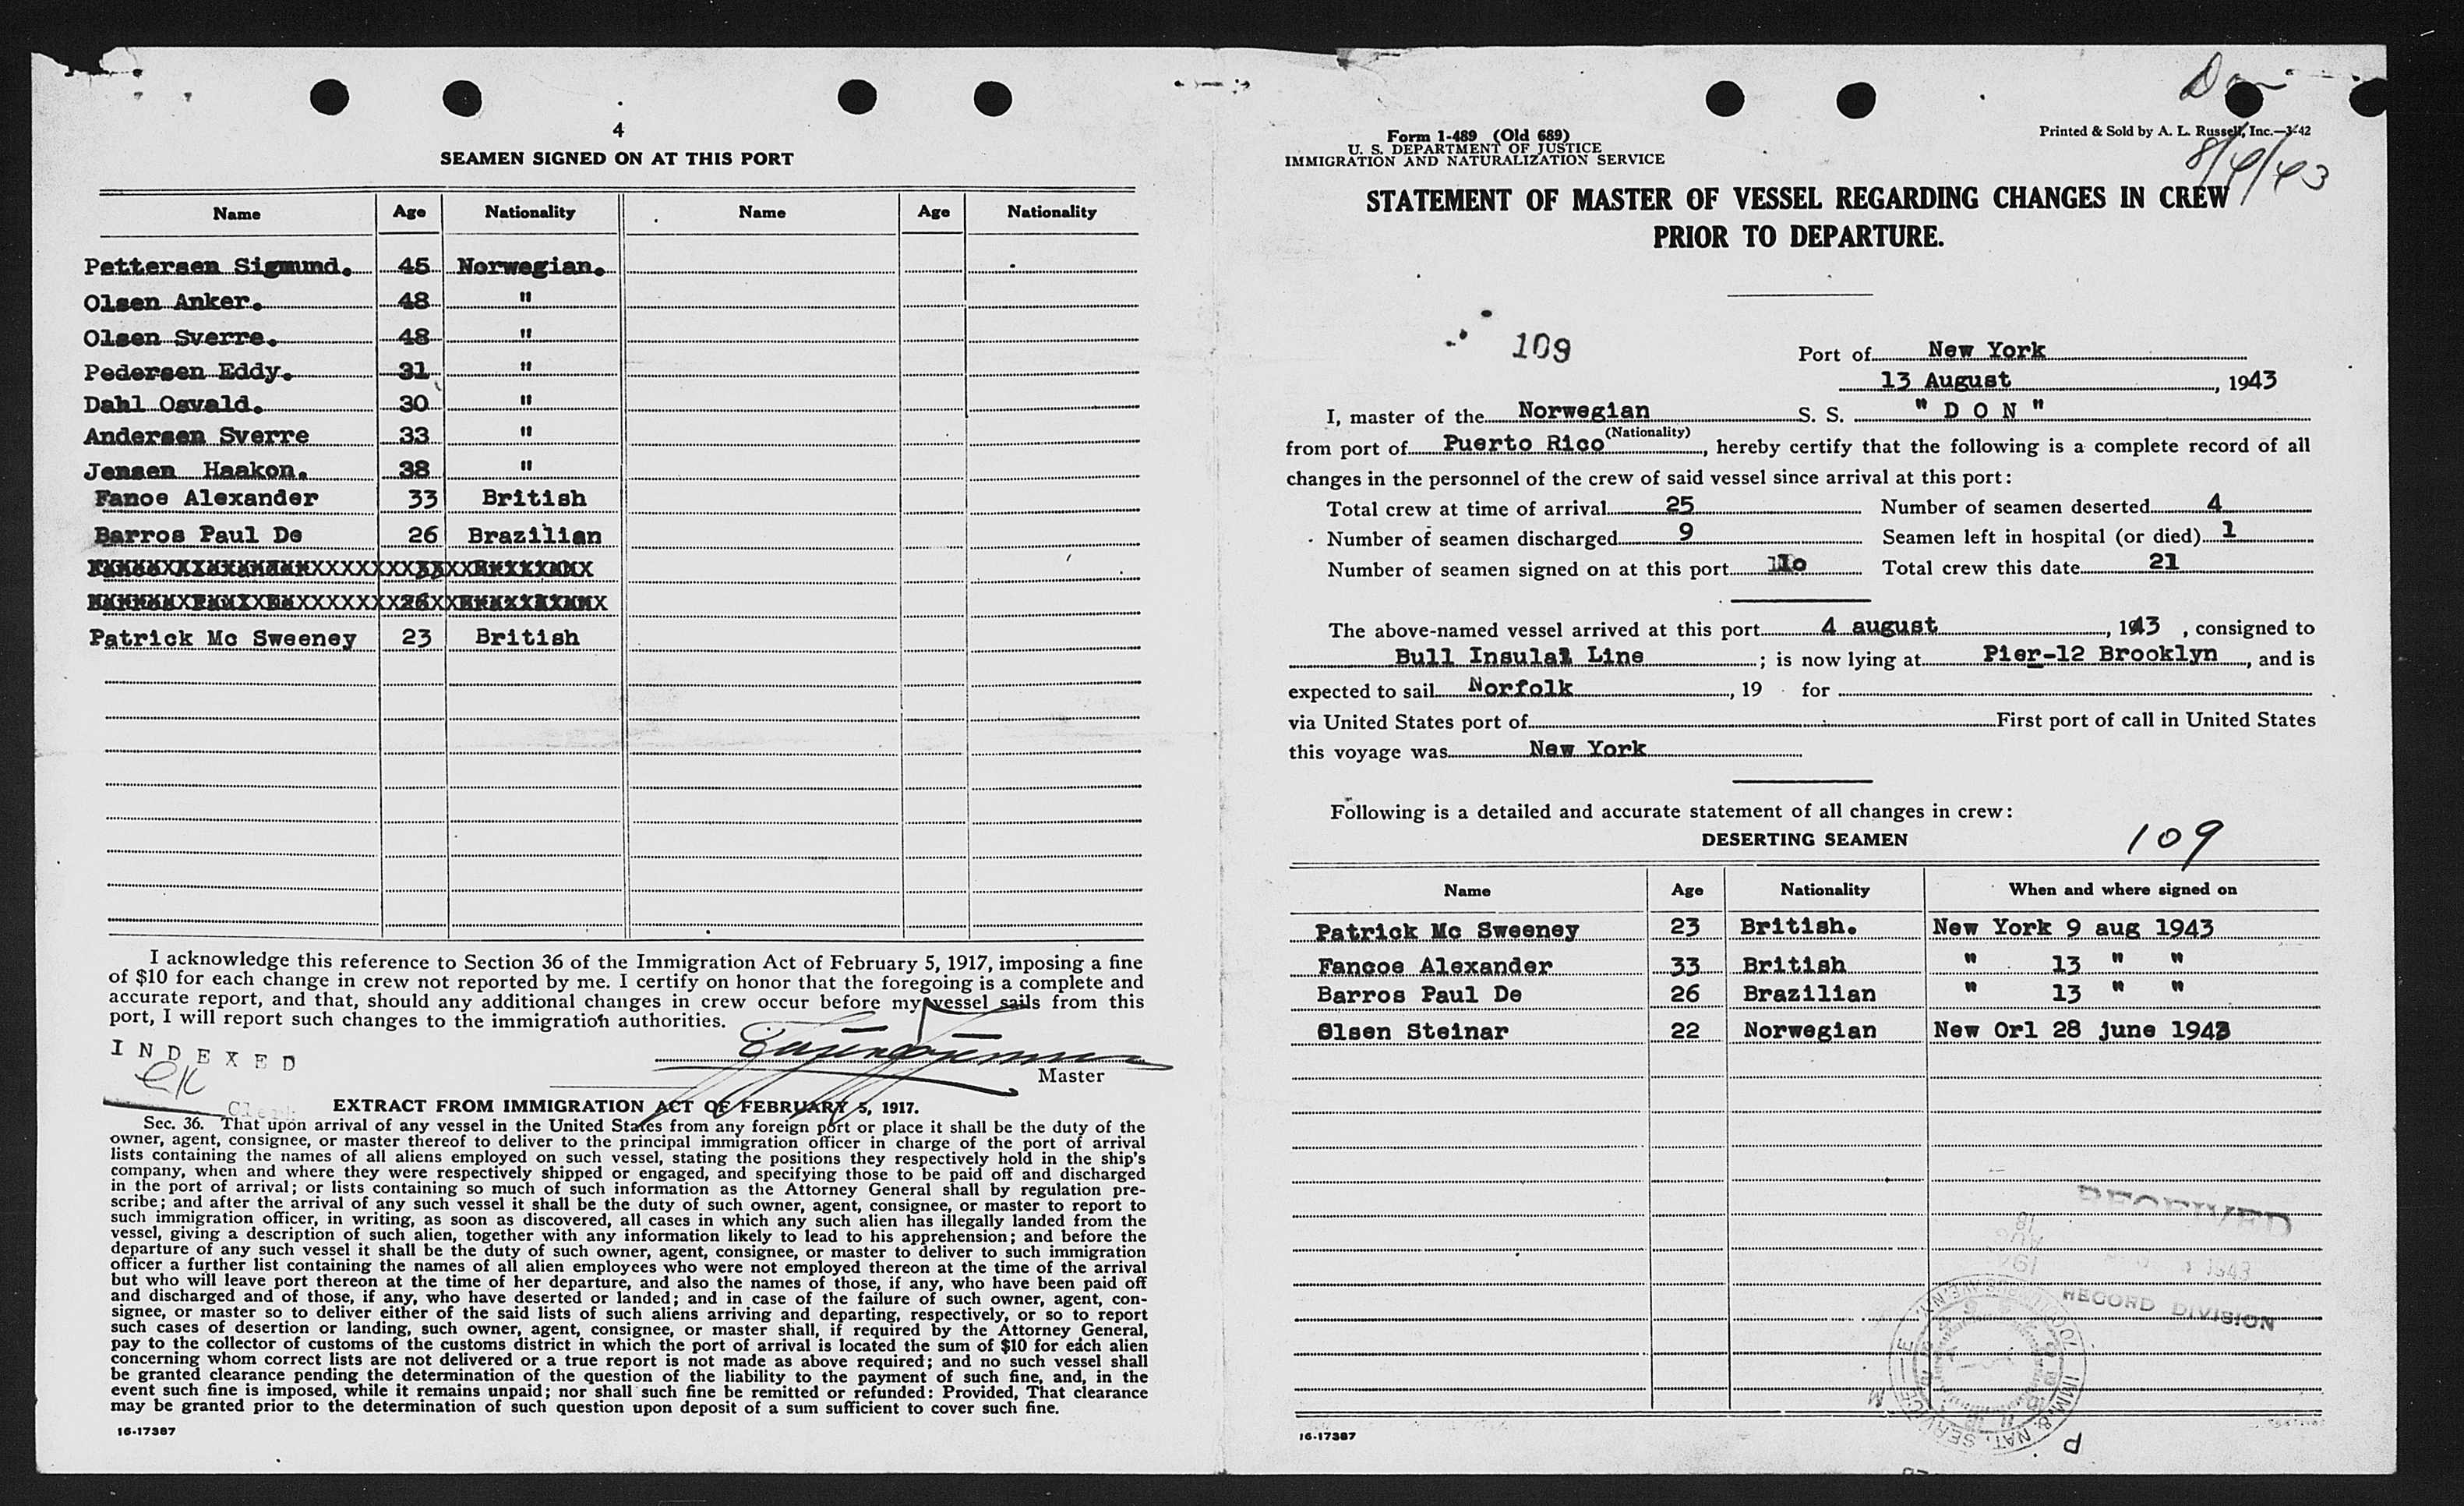 4
SEAMEN SIGNED ON AT THIS PORT
Name Age Nationality Name Age Nationality
Pettersen Sigmund. 45 Norwegian.
Olsen Anker. 48 "
Olsen Sverre. 48 "
Pedersen Eddy. 31 "
Dahl Osvald. 30 "
Andersen Sverre 33 "
Jensen Haakon. 38 "
Fanoe Alexander 33 British
Barros Paul De 26 Brazilian
Patrick Mc Sweeney 23 British
I acknowledge this reference to Section 36 of the Immigration Act of February 5, 1917, imposing a fine
of $10 for each change in crew not reported by me. I certify on honor that the foregoing is a complete and
accurate report, and that, should any additional changes in crew occur before my vessel sails from this
port, I will report such changes to the immigration authorities.
INDEXED
Master
Clerk
EXTRACT FROM IMMIGRATION ACT OF FEBRUARY 5, 1917.
Sec. 36. That upon arrival of any vessel in the United States from any foreign port or place it shall be the duty of the
owner, agent, consignee, or master thereof to deliver to the principal immigration officer in charge of the port of arrival
lists containing the names of all aliens employed on such vessel, stating the positions they respectively hold in the ship's
company, when and where they were respectively shipped or engaged, and specifying those to be paid off and discharged
in the port of arrival; or lists containing so much of such information as the Attorney General shall by regulation pre-
scribe; and after the arrival of any such vessel it shall be the duty of such owner, agent, consignee, or master to report to
such immigration officer, in writing, as soon as discovered, all cases in which any such alien has illegally landed from the
vessel, giving a description of such alien, together with any information likely to lead to his apprehension; and before the
departure of any such vessel it shall be the duty of such owner, agent, consignee, or master to deliver to such immigration
officer a further list containing the names of all alien employees who were not employed thereon at the time of the arrival
but who will leave port thereon at the time of her departure, and also the names of those, if any, who have been paid off
and discharged and of those, if any, who have deserted or landed; and in case of the failure of such owner, agent, con-
signee, or master so to deliver either of the said lists of such aliens arriving and departing, respectively, or so to report
such cases of desertion or landing, such owner, agent, consignee, or master shall, if required by the Attorney General,
pay to the collector of customs of the customs district in which the port of arrival is located the sum of $10 for each alien
concerning whom correct lists are not delivered or a true report is not made as above required; and no such vessel shall
be granted clearance pending the determination of the question of the liability to the payment of such fine, and, in the
event such fine is imposed, while it remains unpaid; nor shall such fine be remitted or refunded: Provided, That clearance
may be granted prior to the determination of such question upon deposit of a sum sufficient to cover such fine.
16-17387
Don
8/4/43
Form 1-489 (Old 689)
U. S. DEPARTMENT OF JUSTICE
IMMIGRATION AND NATURALIZATION SERVICE
Printed & Sold by A. L. Russell, Inc.—3-42
STATEMENT OF MASTER OF VESSEL REGARDING CHANGES IN CREW
PRIOR TO DEPARTURE.
109
Port of New York
13 August, 1943
I, master of the Norwegian S. S. " D O N "
(Nationality)
from port of Puerto Rico, hereby certify that the following is a complete record of all
changes in the personnel of the crew of said vessel since arrival at this port:
Total crew at time of arrival 25 Number of seamen deserted 4
Number of seamen discharged 9 Seamen left in hospital (or died) 1
Number of seamen signed on at this port 10 Total crew this date 21
The above-named vessel arrived at this port 4 august, 1943, consigned to
Bull Insular Line; is now lying at Pier-12 Brooklyn, and is
expected to sail Norfolk, 19 for
via United States port of First port of call in United States
this voyage was New York
Following is a detailed and accurate statement of all changes in crew:
DESERTING SEAMEN
109
Name Age Nationality When and where signed on
Patrick Mc Sweeney 23 British. New York 9 aug 1943
Fancoe Alexander 33 British " 13 " "
Barros Paul De 26 Brazilian " 13 " "
Olsen Steinar 22 Norwegian New Orl 28 june 1943
RECEIVED
1943
RECORD DIVISION
IMM. & NAT. SERVICE
P
16-17387